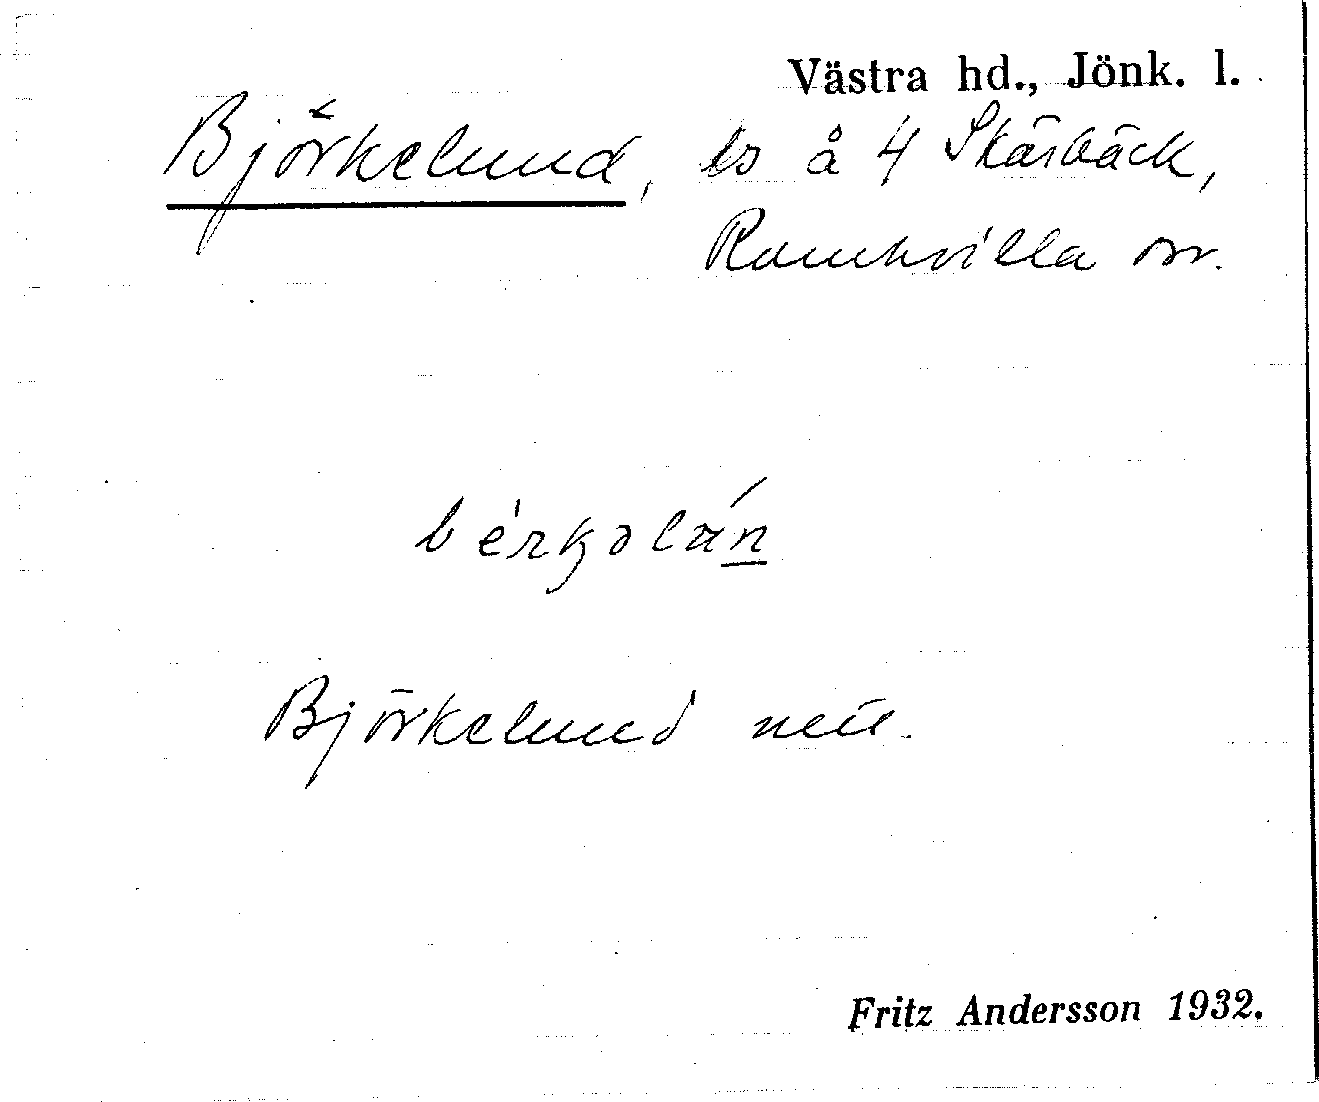 Västra hd., Jönk. l.
Björkelund, ls å 4 Skärbäck,
Ramkvilla sn.
bérkəlán
Björkelund
Fritz Andersson 1932.